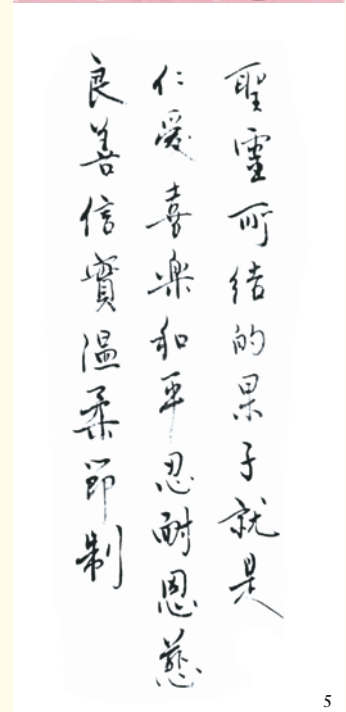 聖靈所结的果子就是
仁爱喜樂和平忍耐恩慈
良善信實温柔節制
5